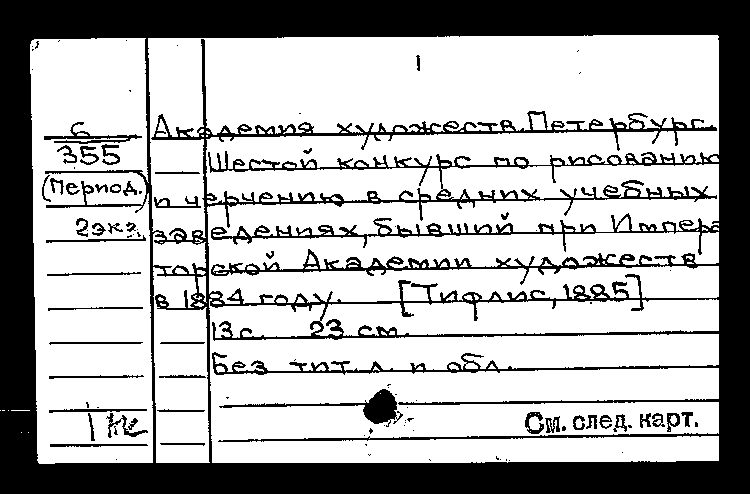 1
6
355
(Период.)
2экз.
Академия художеств. Петербург.
Шестой конкурс по рисованию
и черчению в средних учебных
заведениях, бывший при Импера
торской Академии художеств
в 1884 году. [Тифлис, 1885].
13с. 23 см.
Без тит. л. и обл.
См. след. карт.